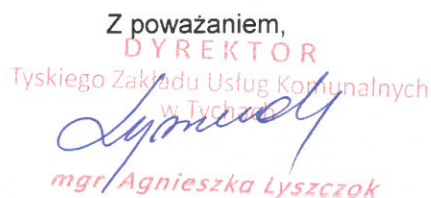 Z poważaniem,
DYREKTOR
Tyskiego Zakładu Usług Komunalnych
w Tychach
mgr Agnieszka Lyszczok